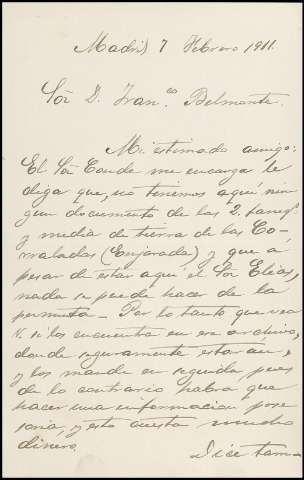 Madrid 7 Febrero 1911.
Sõr D. Fran.co Belmonte.
Mi estimado amigo:
El Sõr Conde me encarga le
diga que, no tenemos aquí nin-
gun documento de las 2. faneg.s
y media de tierra de las Co-
rraladas (Enjarada) y que á
pesar de estar aquí el Sõr Elias,
nada se puede hacer de la
permuta - Por lo tanto que vea
V. si los encuentra en ese archivo,
donde seguramente estarán,
y los mande en seguida pues
de lo contrario habra que
hacer una informacion pose-
soria, y esto cuesta mucho
dinero.
Dice tam-